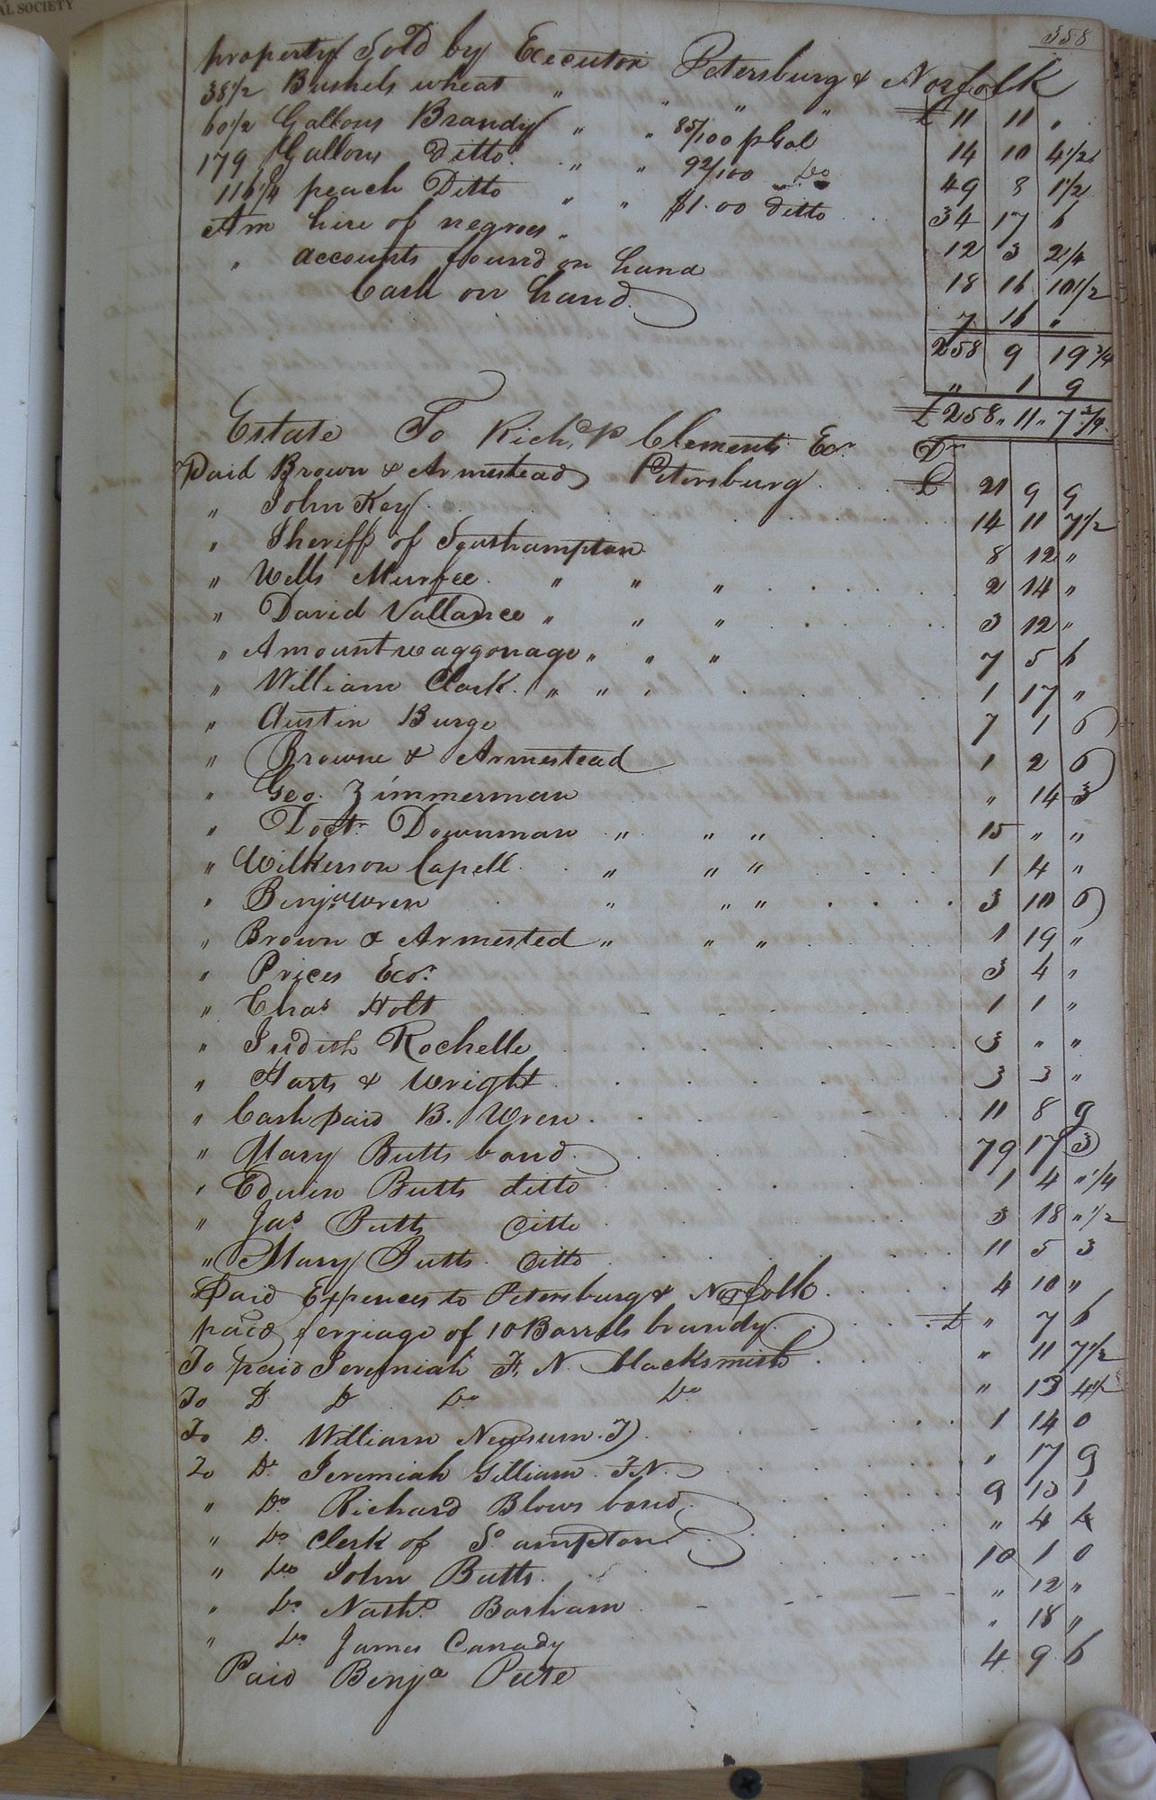 AL SOCIETY
358
property Sold by Executor Petersburg & Norfolk
38 1/2 Bushels wheat " " " " £ 11 11 "
60 1/2 Gallons Brandy " " 85/100 p Gal 14 10 4 1/2
179 Gallons Ditto " " 92/100 Do 49 8 1 1/2
116 1/4 peach Ditto " " $1.00 Ditto 34 17 6
Am hire of negroes " 12 3 2 1/4
" accounts found on hand 18 16 10 1/2
Cash on hand 7 16 "
258 9 19 3/4
" 1 9
£ 258 " 11 " 7 3/4
Estate To Richd P Clements Exr Dr
Paid Brown & Armestead Petersburg £ 21 9 9
" John Key 14 11 7 1/2
" Sheriff of Southampton 8 12 "
" Wells Murfee " " " 2 14 "
" David Vallance " " " 3 12 "
" Amount waggonage " " " 7 5 6
" William Clark " " " 1 17 "
" Austin Burge 7 1 6
" Browne & Armestead 1 2 6
" Geo. Zimmerman " 14 3
" Doctr Downman " " " 15 " "
" Wilkerson Capell " " " 1 4 "
" Benja Wren " " " 3 10 6
" Brown & Armested " " " 1 19 "
" Prices Exor 3 4 "
" Chas Holt 1 1 "
" Judith Rochelle 3 " "
" Harts & Wright 3 3 "
" Cash paid B. Wren 11 8 9
" Mary Butts bond 79 17 3
" Edwin Butts ditto 1 4 " 1/4
" Jas Butts ditto 3 18 " 1/2
" Mary Butts ditto 11 5 3
Paid Expences to Petersburg & Norfolk 4 10 "
paid ferriage of 10 Barrels brandy £ " 7 6
To paid Jeremiah F. N. blacksmith " 11 7 1/2
To D D Do Do " 13 4 1/2
To D. William Newsum 1 14 0
To Do Jeremiah Gilliam F.N. " 17 9
" Do Richard Blows bond 9 13 1
" Do Clerk of So ampton " 4
" Do John Butts 10 1 0
" Do Nathl Barham " 12 "
" Do James Canady " 18 "
Paid Benja Pete 4 9 6